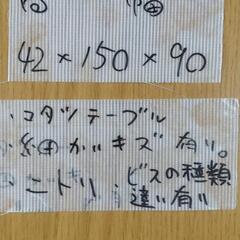 幅
42×150×90
・コタツテーブル
・細かいキズ有り。
ニトリ
ビスの種類
違い有り